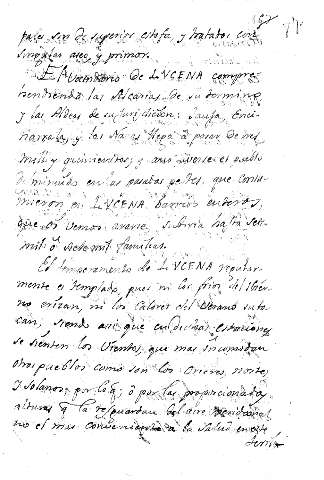 pales son de superior estofa, y tratados con
singular aseo, y primor.
El Vecindario de LVCENA compre-
hendiendo las Alcarias de su termino
y las Aldeas de su Jurisdicion: Jauja, Enci-
narexo, y las Navas llega a pasar de seis
mil y quinientos; y a no averse el pueblo
diminuido en las pasadas pestes, que consu-
mieron en LVCENA barrios enteros,
que oy vemos ararse, subiria hasta seis
mil ò siete mil familias.
El temperamento de LVCENA regular-
mente es templado, pues ni los frios del Ibier-
no erizan, ni los Calores del Verano sufo-
can, siendo asi que en dichas estaciones
se sienten los Vientos, que mas incomodan
otros pueblos como son los Cierzos, nortes
y Solanos, por lo q; ò por las proporcionadas
alturas q la resguardan del aire Meridional
no el mas conveniente a la Salud en este